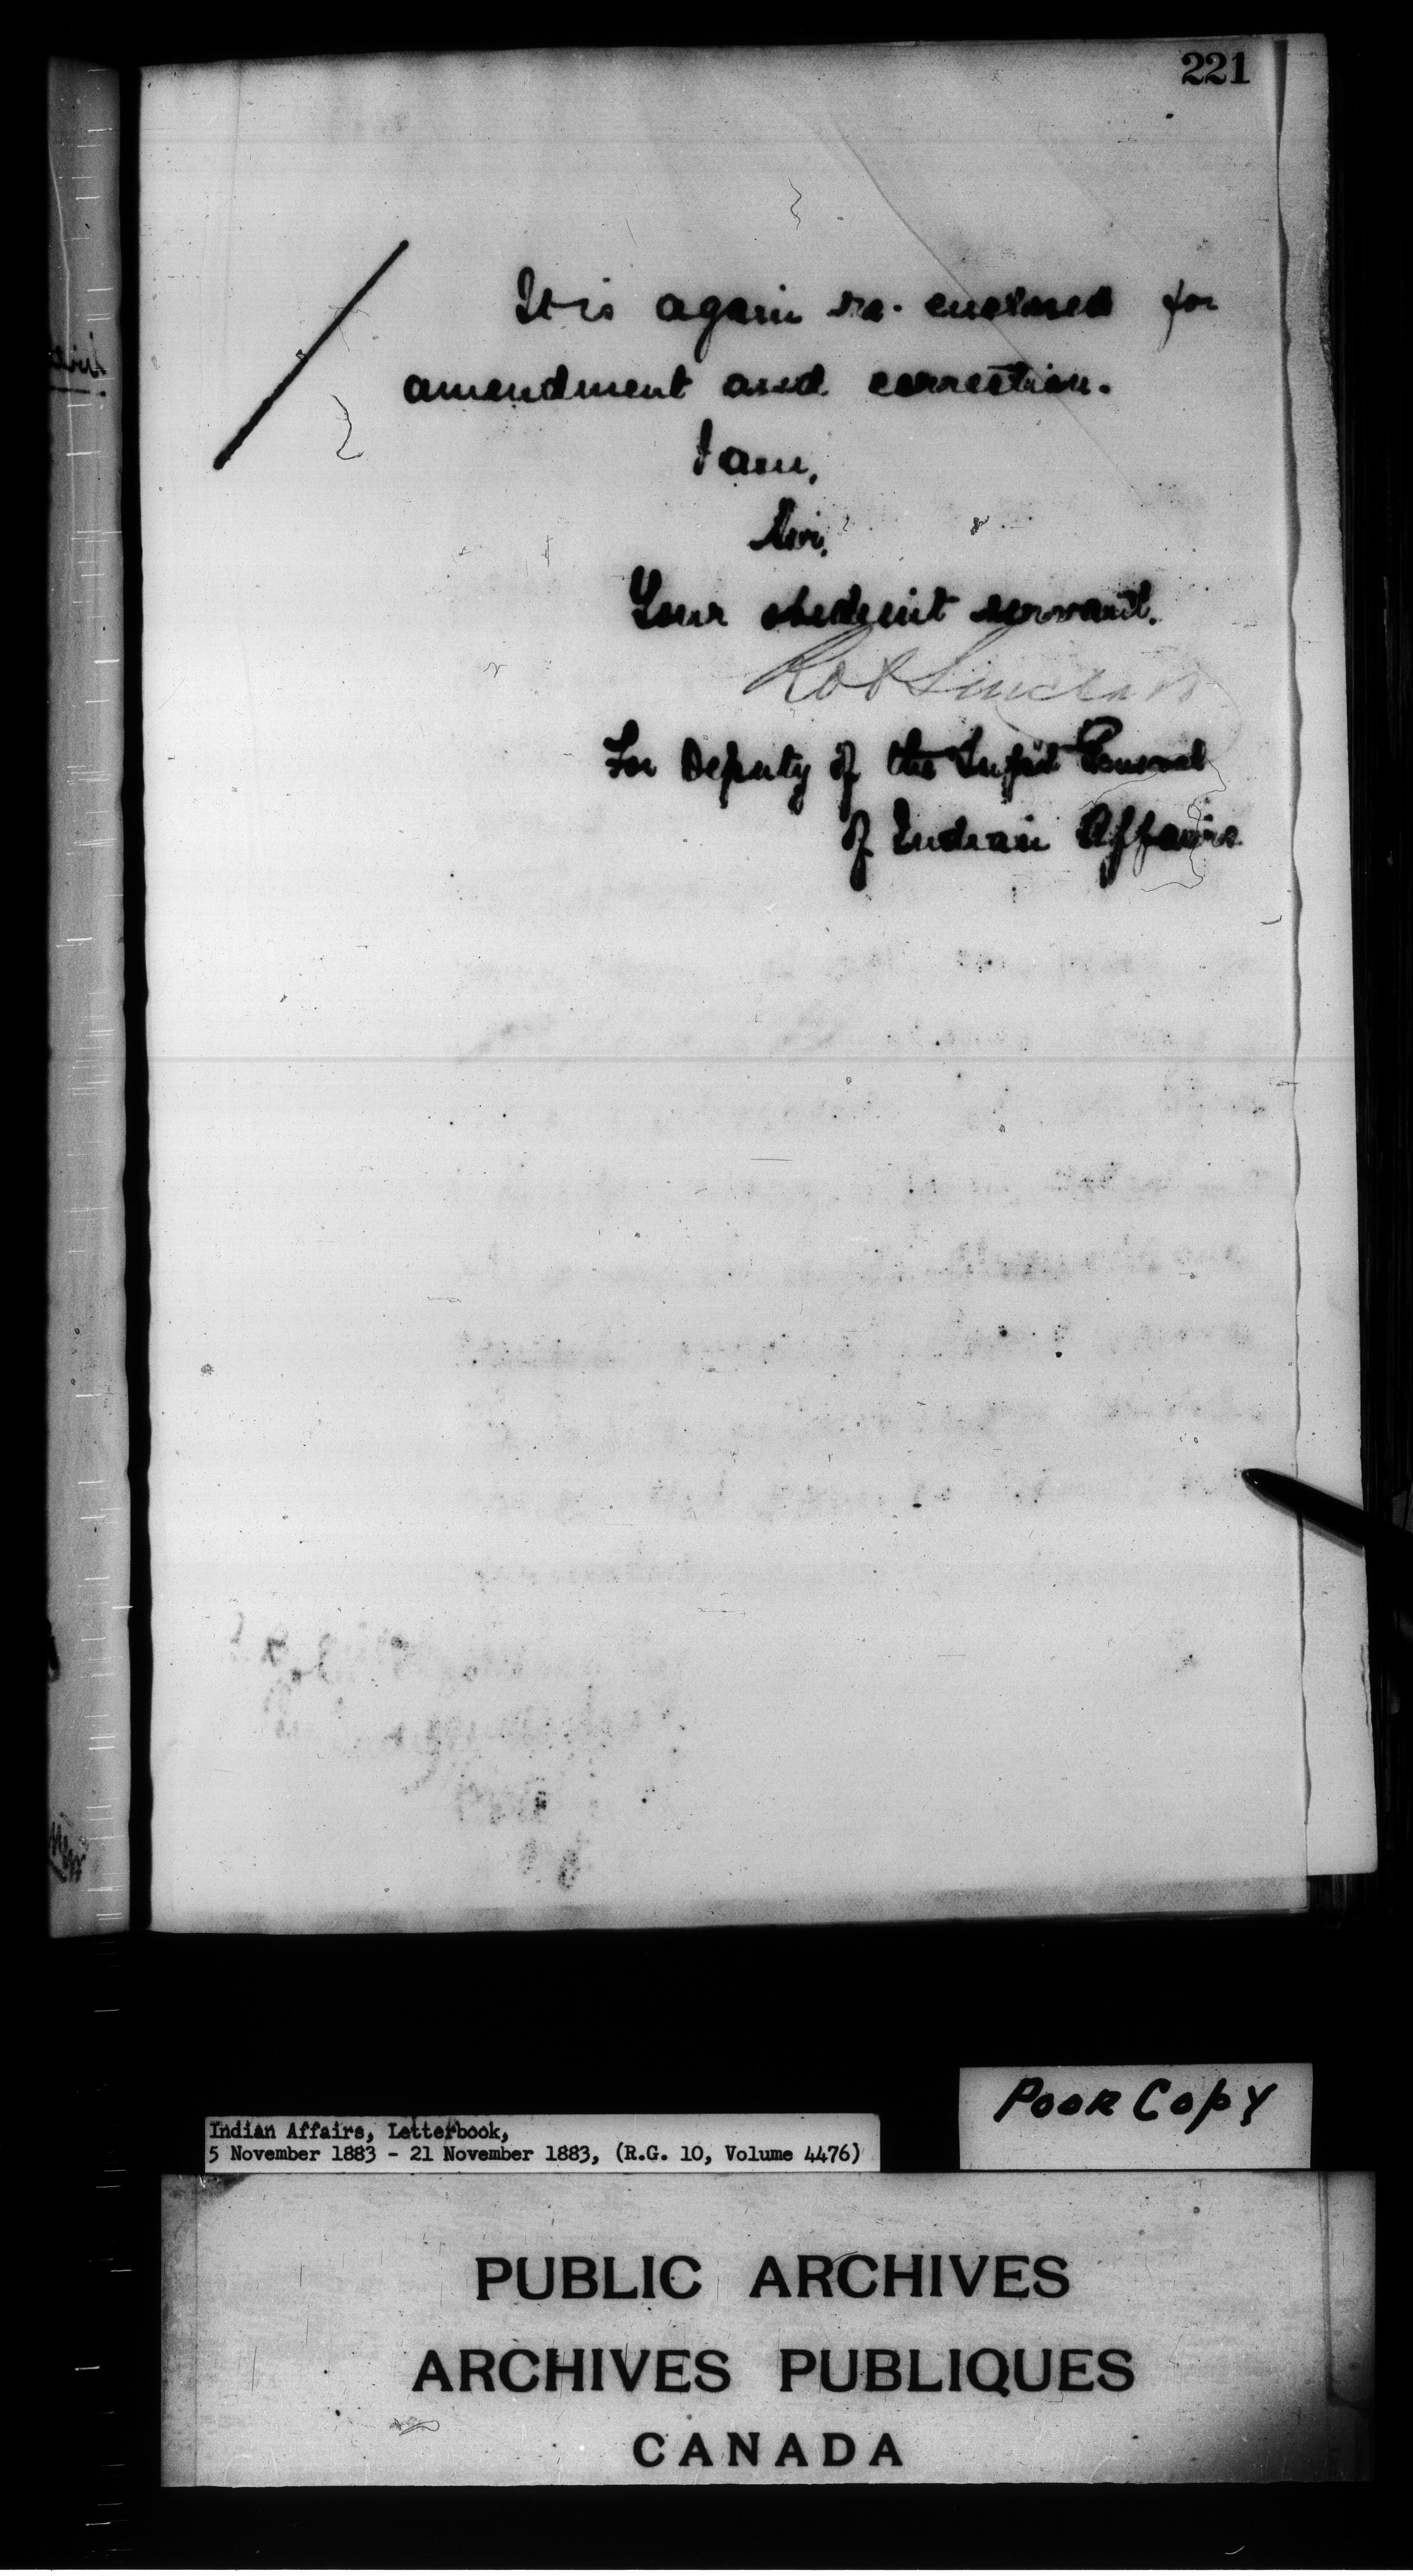 221
It is again re-enclosed for
amendment and correction.
I am,
Sir,
Your obedient servant.
Rob Sinclair
For Deputy of the Supt General
of Indian Affairs
Poor Copy
Indian Affairs, Letterbook,
5 November 1883 - 21 November 1883, (R.G. 10, Volume 4476)
PUBLIC ARCHIVES
ARCHIVES PUBLIQUES
CANADA